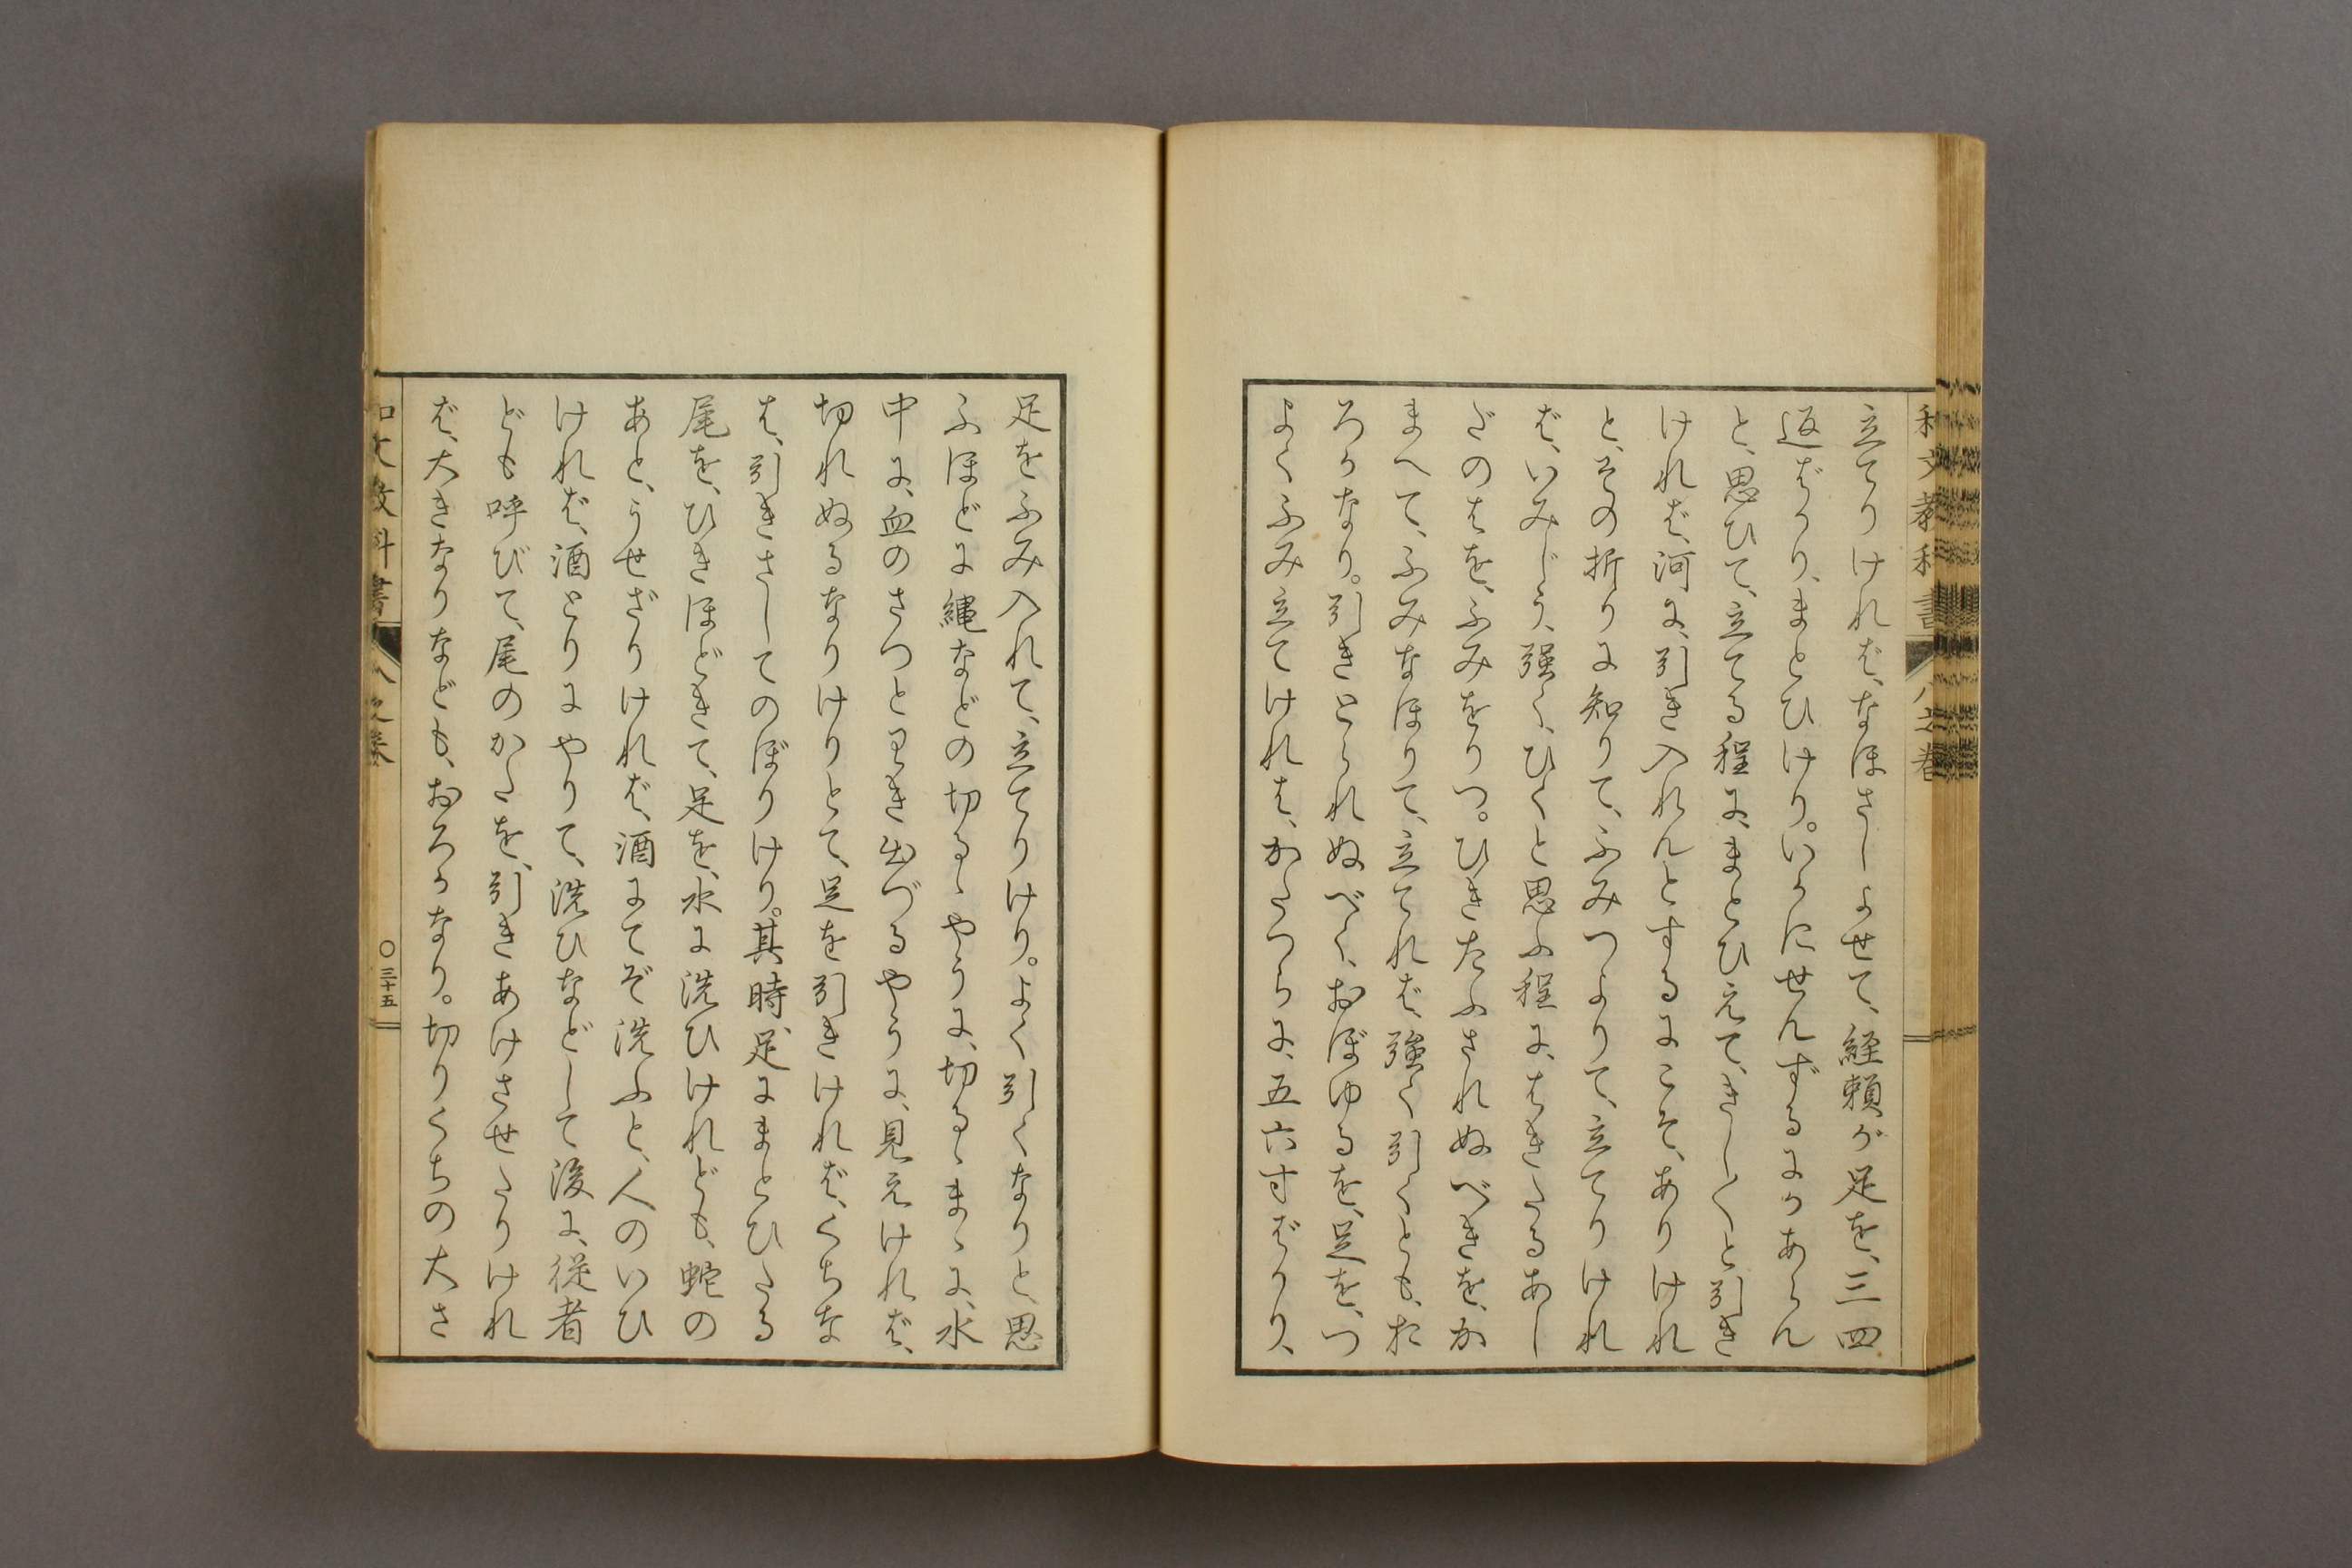 立てりけれバ、なほさしよせて、経頼が足を、三四
返ばかり、まとひけり。いかにせんずるにかあらん
と、思ひて、立てる程に、まとひえて、きし〱と引き
けれバ、河に、引き入れんとするにこそ、ありけれ
と、その折りに知りて、ふみつよりて、立てりけれ
バ、いみじう、強く、ひくと思ふ程に、はきたるあし
だのはを、ふみをりつ。ひきたふされぬべきを、か
まへて、ふみなほりて、立てれバ、強く引くとも、お
ろかなり。引きとられぬべく、おぼゆるを、足を、つ
よくふみ立てけれは、かたつらに、五六寸ばかり、
足をふみ入れて、立てりけり。よく引くなりと、思
ふほどに縄などの切るゝやうに、切るゝまゝに、水
中に、血のさつとわき出づるやうに、見えけれバ、
切れぬるなりけりとて、足を引きけれバ、くちな
は、引きさしてのぼりけり。其時足にまとひたる
尾を、ひきほどきて、足を、水に洗ひけれども、蛇の
あと、うせざりけれバ、酒にてぞ洗ふと、人のいひ
けれバ、酒とりにやりて、洗ひなどして後に、従者
ども呼びて、尾のかたを、引きあけさせたりけれ
バ、大きなりなども、おろかなり。切りくちの大さ
和文教科書
八之巻
〇三十五